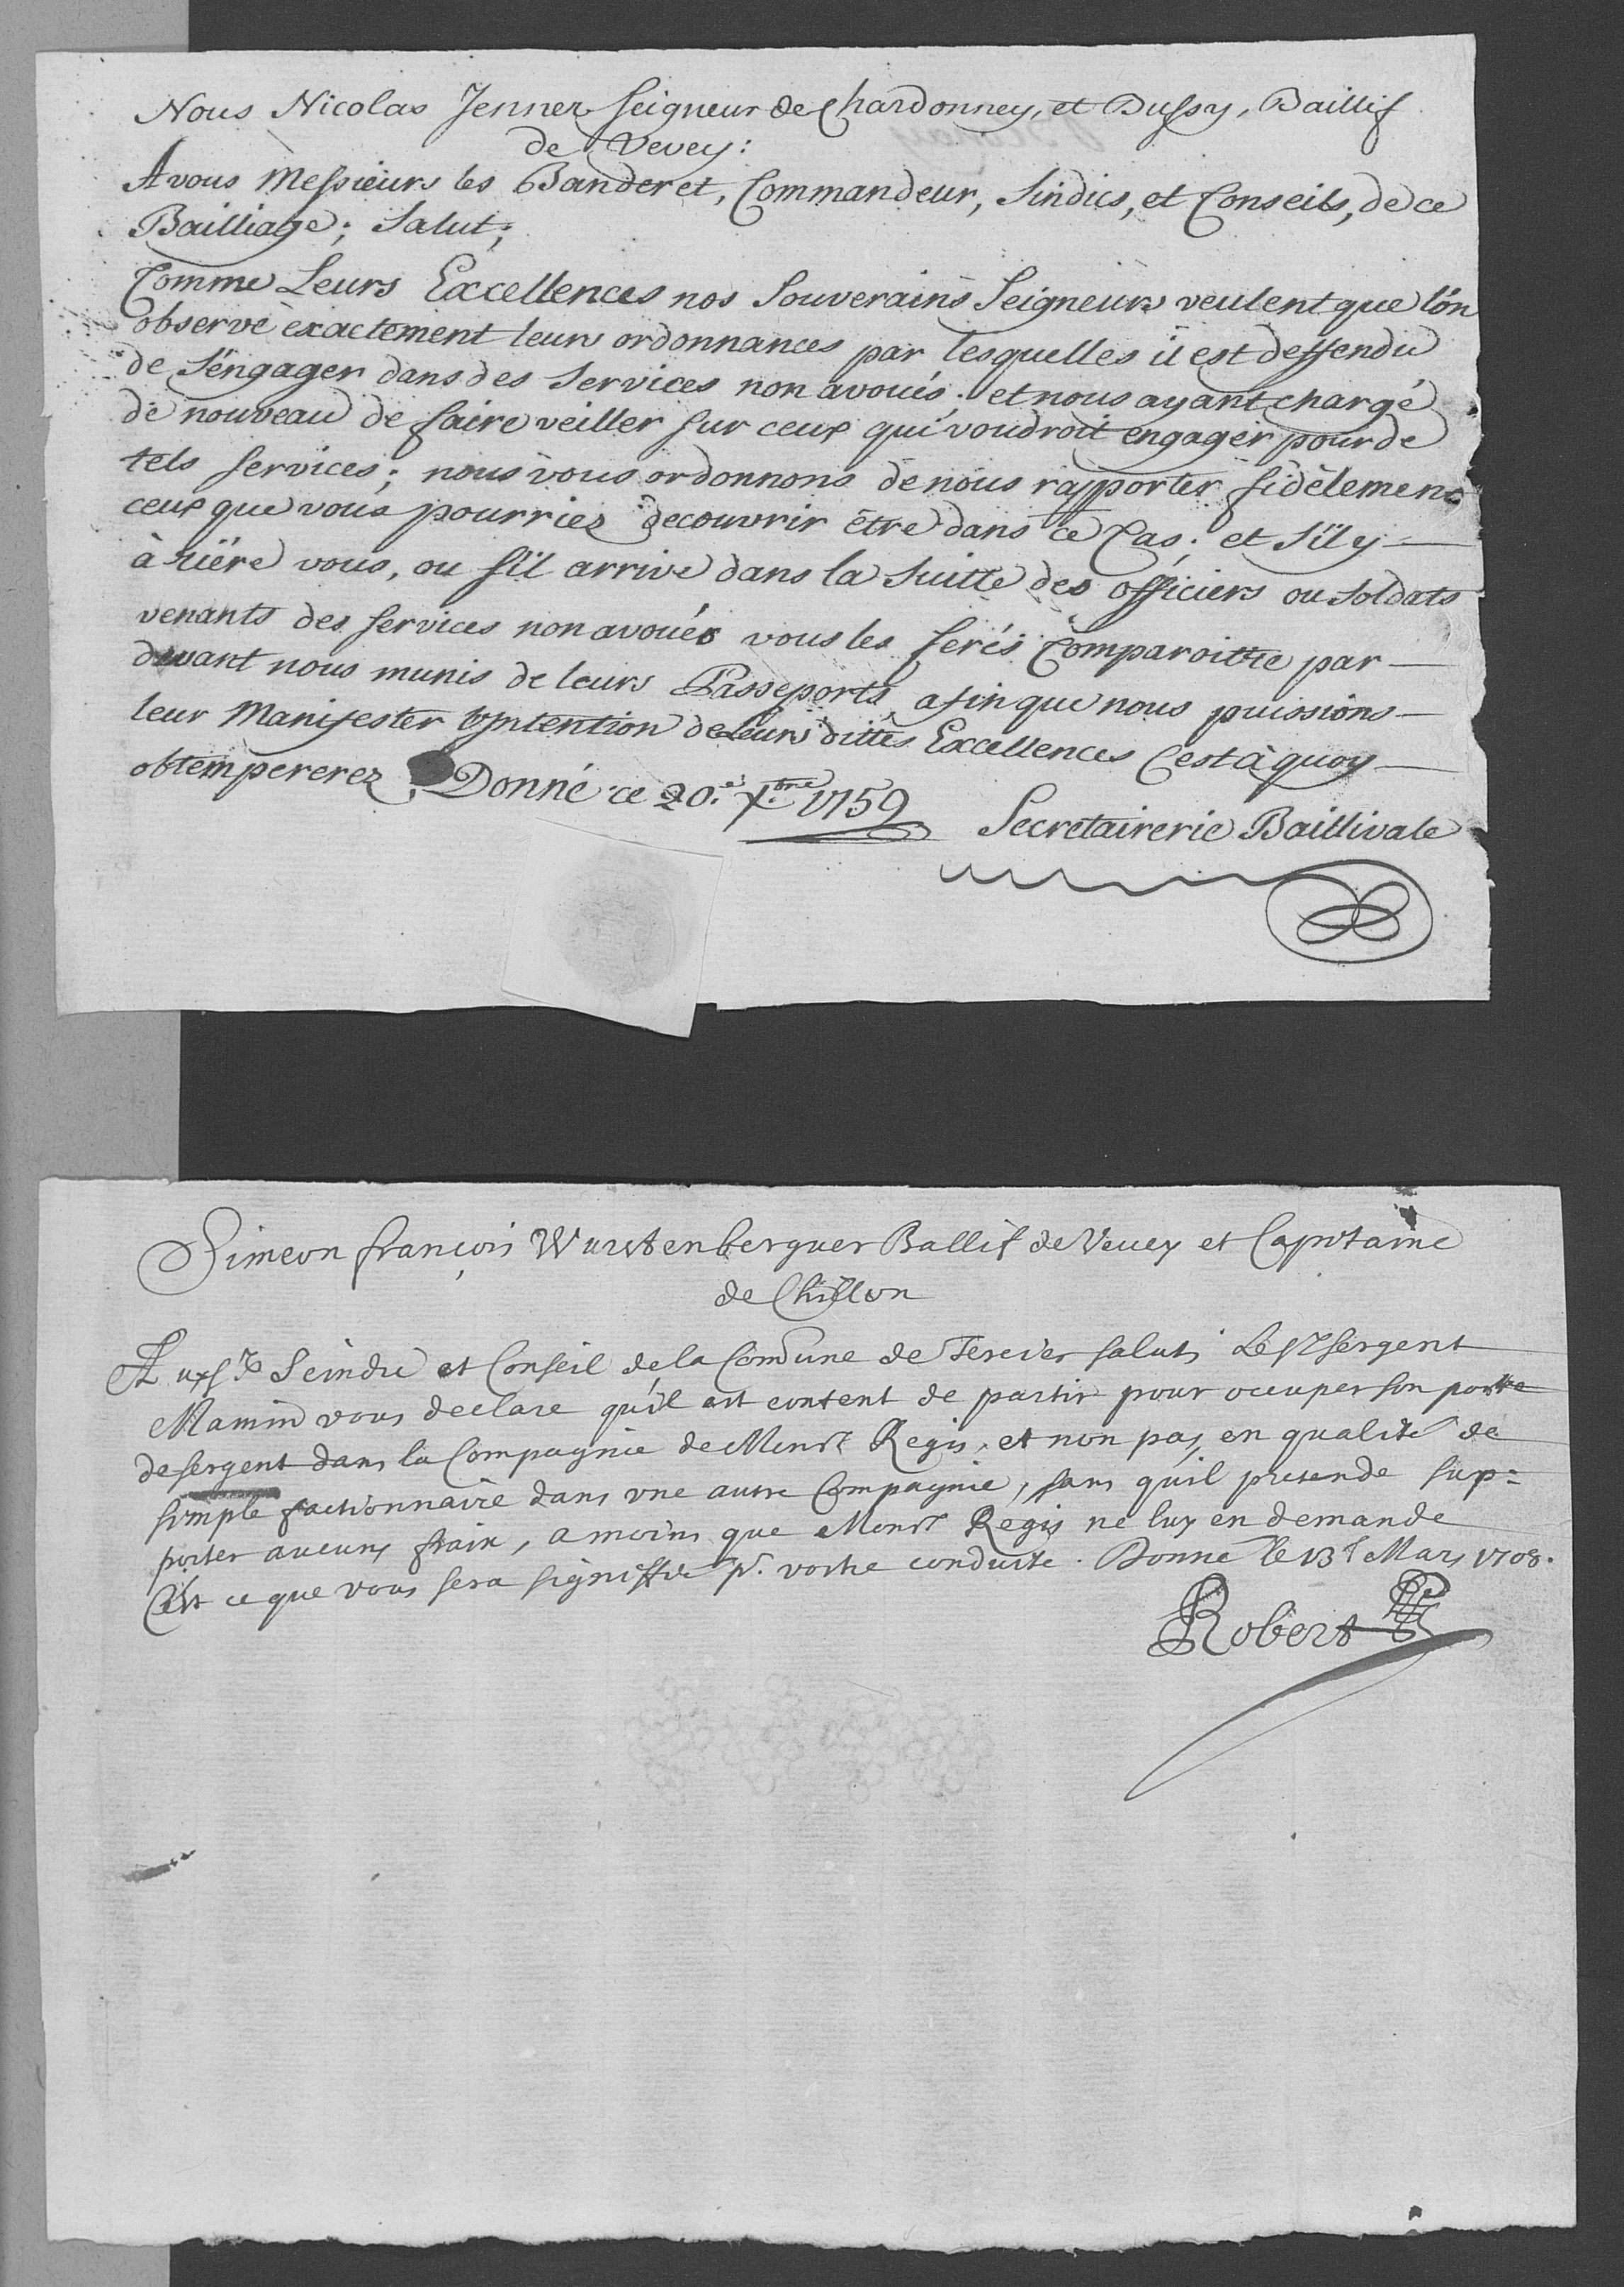 Nous Nicolas Jenner Seigneur de Chardonney, et Bussy, Baillif
de Vevey:
A vous Messieurs les Banderet, Commandeur, Sindics, et Conseils, de ce
Bailliage; Salut;
Comme Leurs Excellences nos Souverains Seigneurs veulent que l'on
observe exactement leurs ordonnances par lesquelles il est deffendu
de s'engager dans des Services non avoués; et nous ayant chargé
de nouveau de faire veiller sur ceux qui voudroit engager pour de
tels services; nous vous ordonnons de nous rapporter fidèlement
ceux que vous pourriez decouvrir être dans ce Cas; et s'il y
à riére vous, ou s'il arrive dans la Suitte des officiers ou Soldats
venants des services non avoués vous les ferés Comparoitre par
devant nous munis de leurs Passeports, afin que nous puissions
leur Manifester l'Intention de Leurs dittes Excellences C'est à quoy
obtempererez. Donné ce 20.e Xbre 1759
Secretairerie Baillivale
Simeon françois Wurstenberguer Ballif de Vevey et Capitaine
de Chillon
Aux Srs Seindic et Conseil de la Comune de salut; Le Sr sergent
Mamin vous declare qu'il est content de partir pour occuper son poste
de sergent dans la Compagnie de Monsr Regis, et non pas en qualité de
simple factionnaire dans vne autre Compagnie, sans qu'il pretende sup=
porter aucuns frain, a moins que Monsr Regis ne luy en demande
C'est ce que vous sera signiffié pr. vostre conduite. Donné le 13e Mars 1708.
Robert